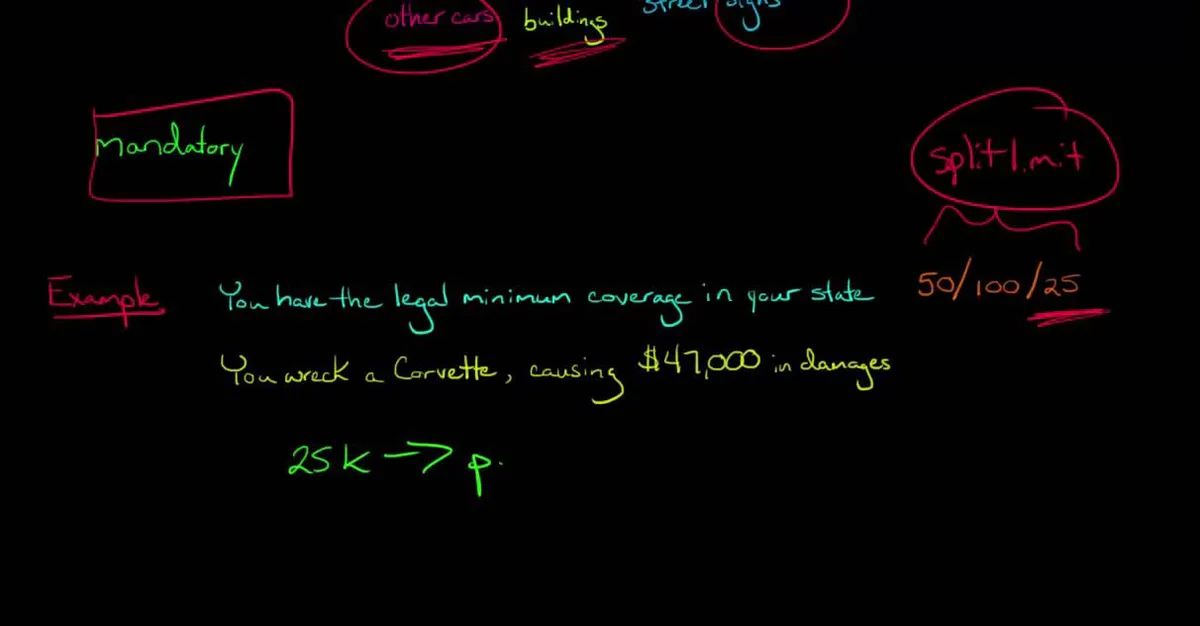 other cars buildings street signs
mandatory
split limit
Example You have the legal minimum coverage in your state 50/100/25
You wreck a Corvette, causing $47,000 in damages
25k → p